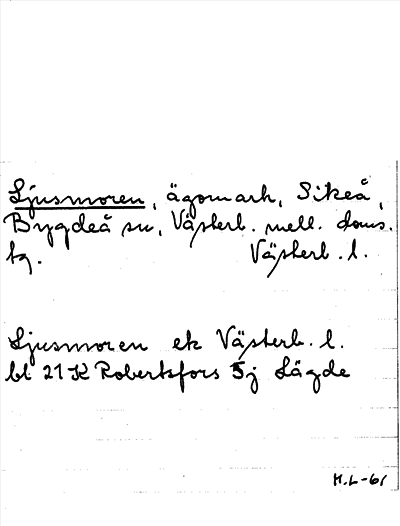 Ljusmoren, ägomark, Sikeå,
Bygdeå sn, Västerb. mell. doms.
tg. Västerb. l.
Ljusmoren ek Västerb. l.
bl 21 K Robertsfors 5j Lägde
H.L-61